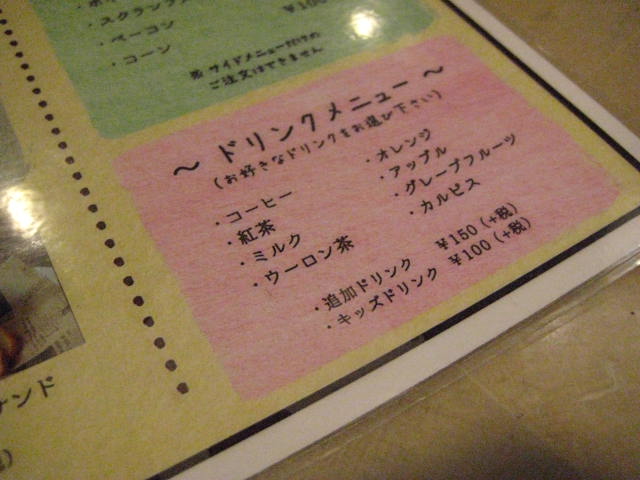 スクランブル
・ベーコン
・コーン
¥100
※サイドメニューだけの
ご注文はできません
～ ドリンクメニュー ～
(お好きなドリンクをお選び下さい)
・コーヒー
・紅茶
・ミルク
・ウーロン茶
・オレンジ
・アップル
・グレープフルーツ
・カルピス
・追加ドリンク ¥150 (+税)
・キッズドリンク ¥100 (+税)
ンド